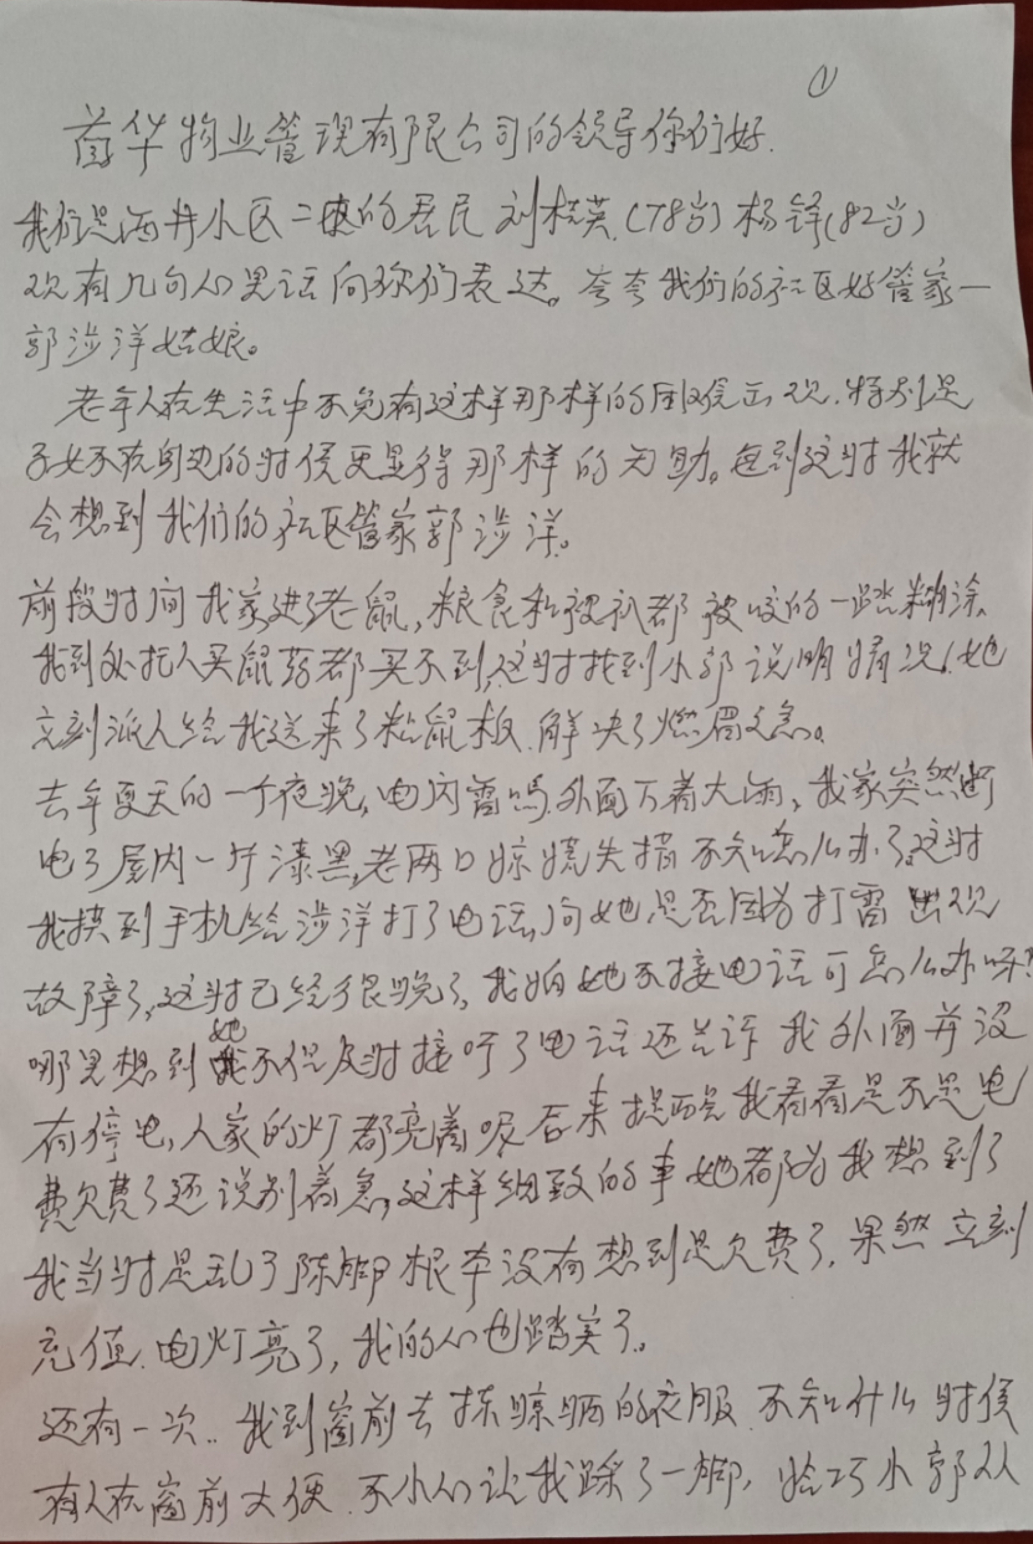 ①
首华物业管理有限公司的领导你们好.
我们是西井小区二楼的居民刘桂英.(78岁)杨铎(82岁)
现有几句心里话向你们表达。夸夸我们的社区好管家一
郭涉洋姑娘。
老年人在生活中不免有这样那样的困难出现.特别是
子女不在身边的时侯更显得那样的无助。每到这时我就
会想到我们的社区管家郭涉洋。
前段时间我家进了老鼠,粮食和被礼都被咬的一踏糊涂、
我到处托人买鼠药都买不到,这时找到小郭说明情况!她
立刻派人给我送来了粘鼠板.解决了燃眉之急。
去年夏天的一个夜晚,电闪雷鸣.外面下着大雨、我家突然断
电了屋内一片漆黑,老两口惊慌失措不知怎么办了,这时
我摸到手机给涉洋打了电话,问她是否因为打雷出现
故障了,这时已经很晚了,我怕她不接电话可怎么办呀?
哪里想到她不但及时接听了电话还告诉我外面并没
有停电,人家的灯都亮着呢后来提醒我看看是不是电
费欠费了还说别着急,这样细致的事她都为我想到了
我当时是乱了阵脚根本没有想到是欠费了.果然立刻
充值.电灯亮了,我的心也踏实了。
还有一次..我到窗前去抹晾晒的衣服.不知什么时侯
有人在窗前大便.不小心让我踩了一脚,恰巧小郭从